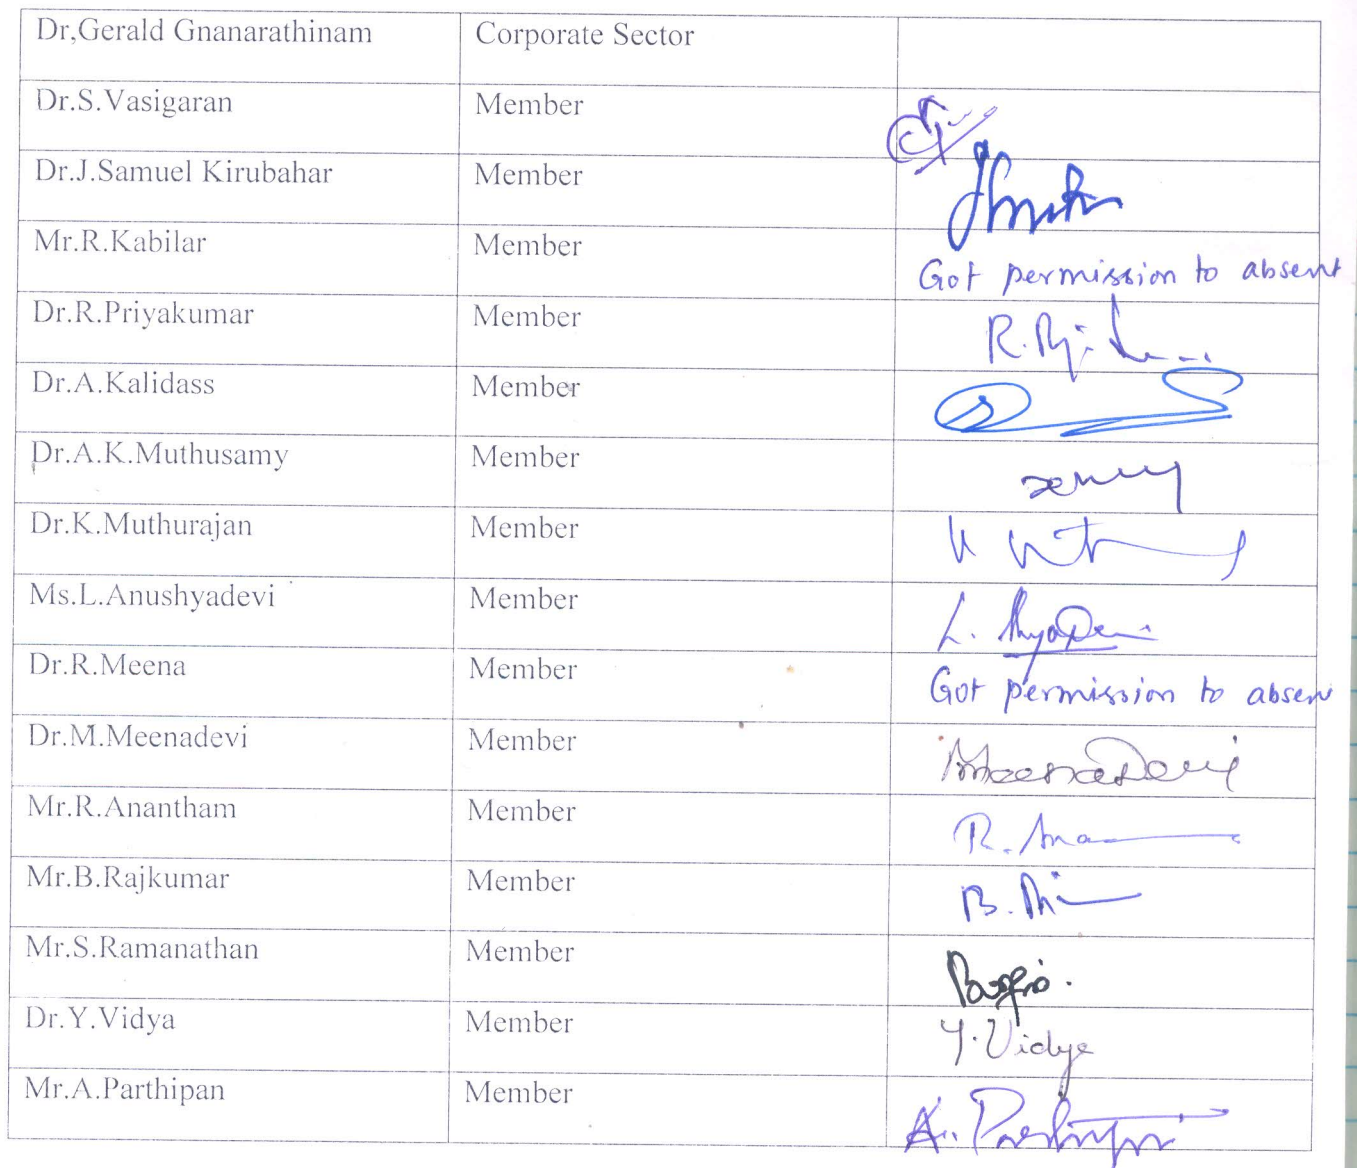 Dr,Gerald Gnanarathinam Corporate Sector
Dr.S.Vasigaran Member
Dr.J.Samuel Kirubahar Member
Mr.R.Kabilar Member Got permission to absent
Dr.R.Priyakumar Member
Dr.A.Kalidass Member
Dr.A.K.Muthusamy Member
Dr.K.Muthurajan Member
Ms.L.Anushyadevi Member
Dr.R.Meena Member Got permission to absent
Dr.M.Meenadevi Member MeenaDevi
Mr.R.Anantham Member
Mr.B.Rajkumar Member
Mr.S.Ramanathan Member
Dr.Y.Vidya Member Y.Vidya
Mr.A.Parthipan Member